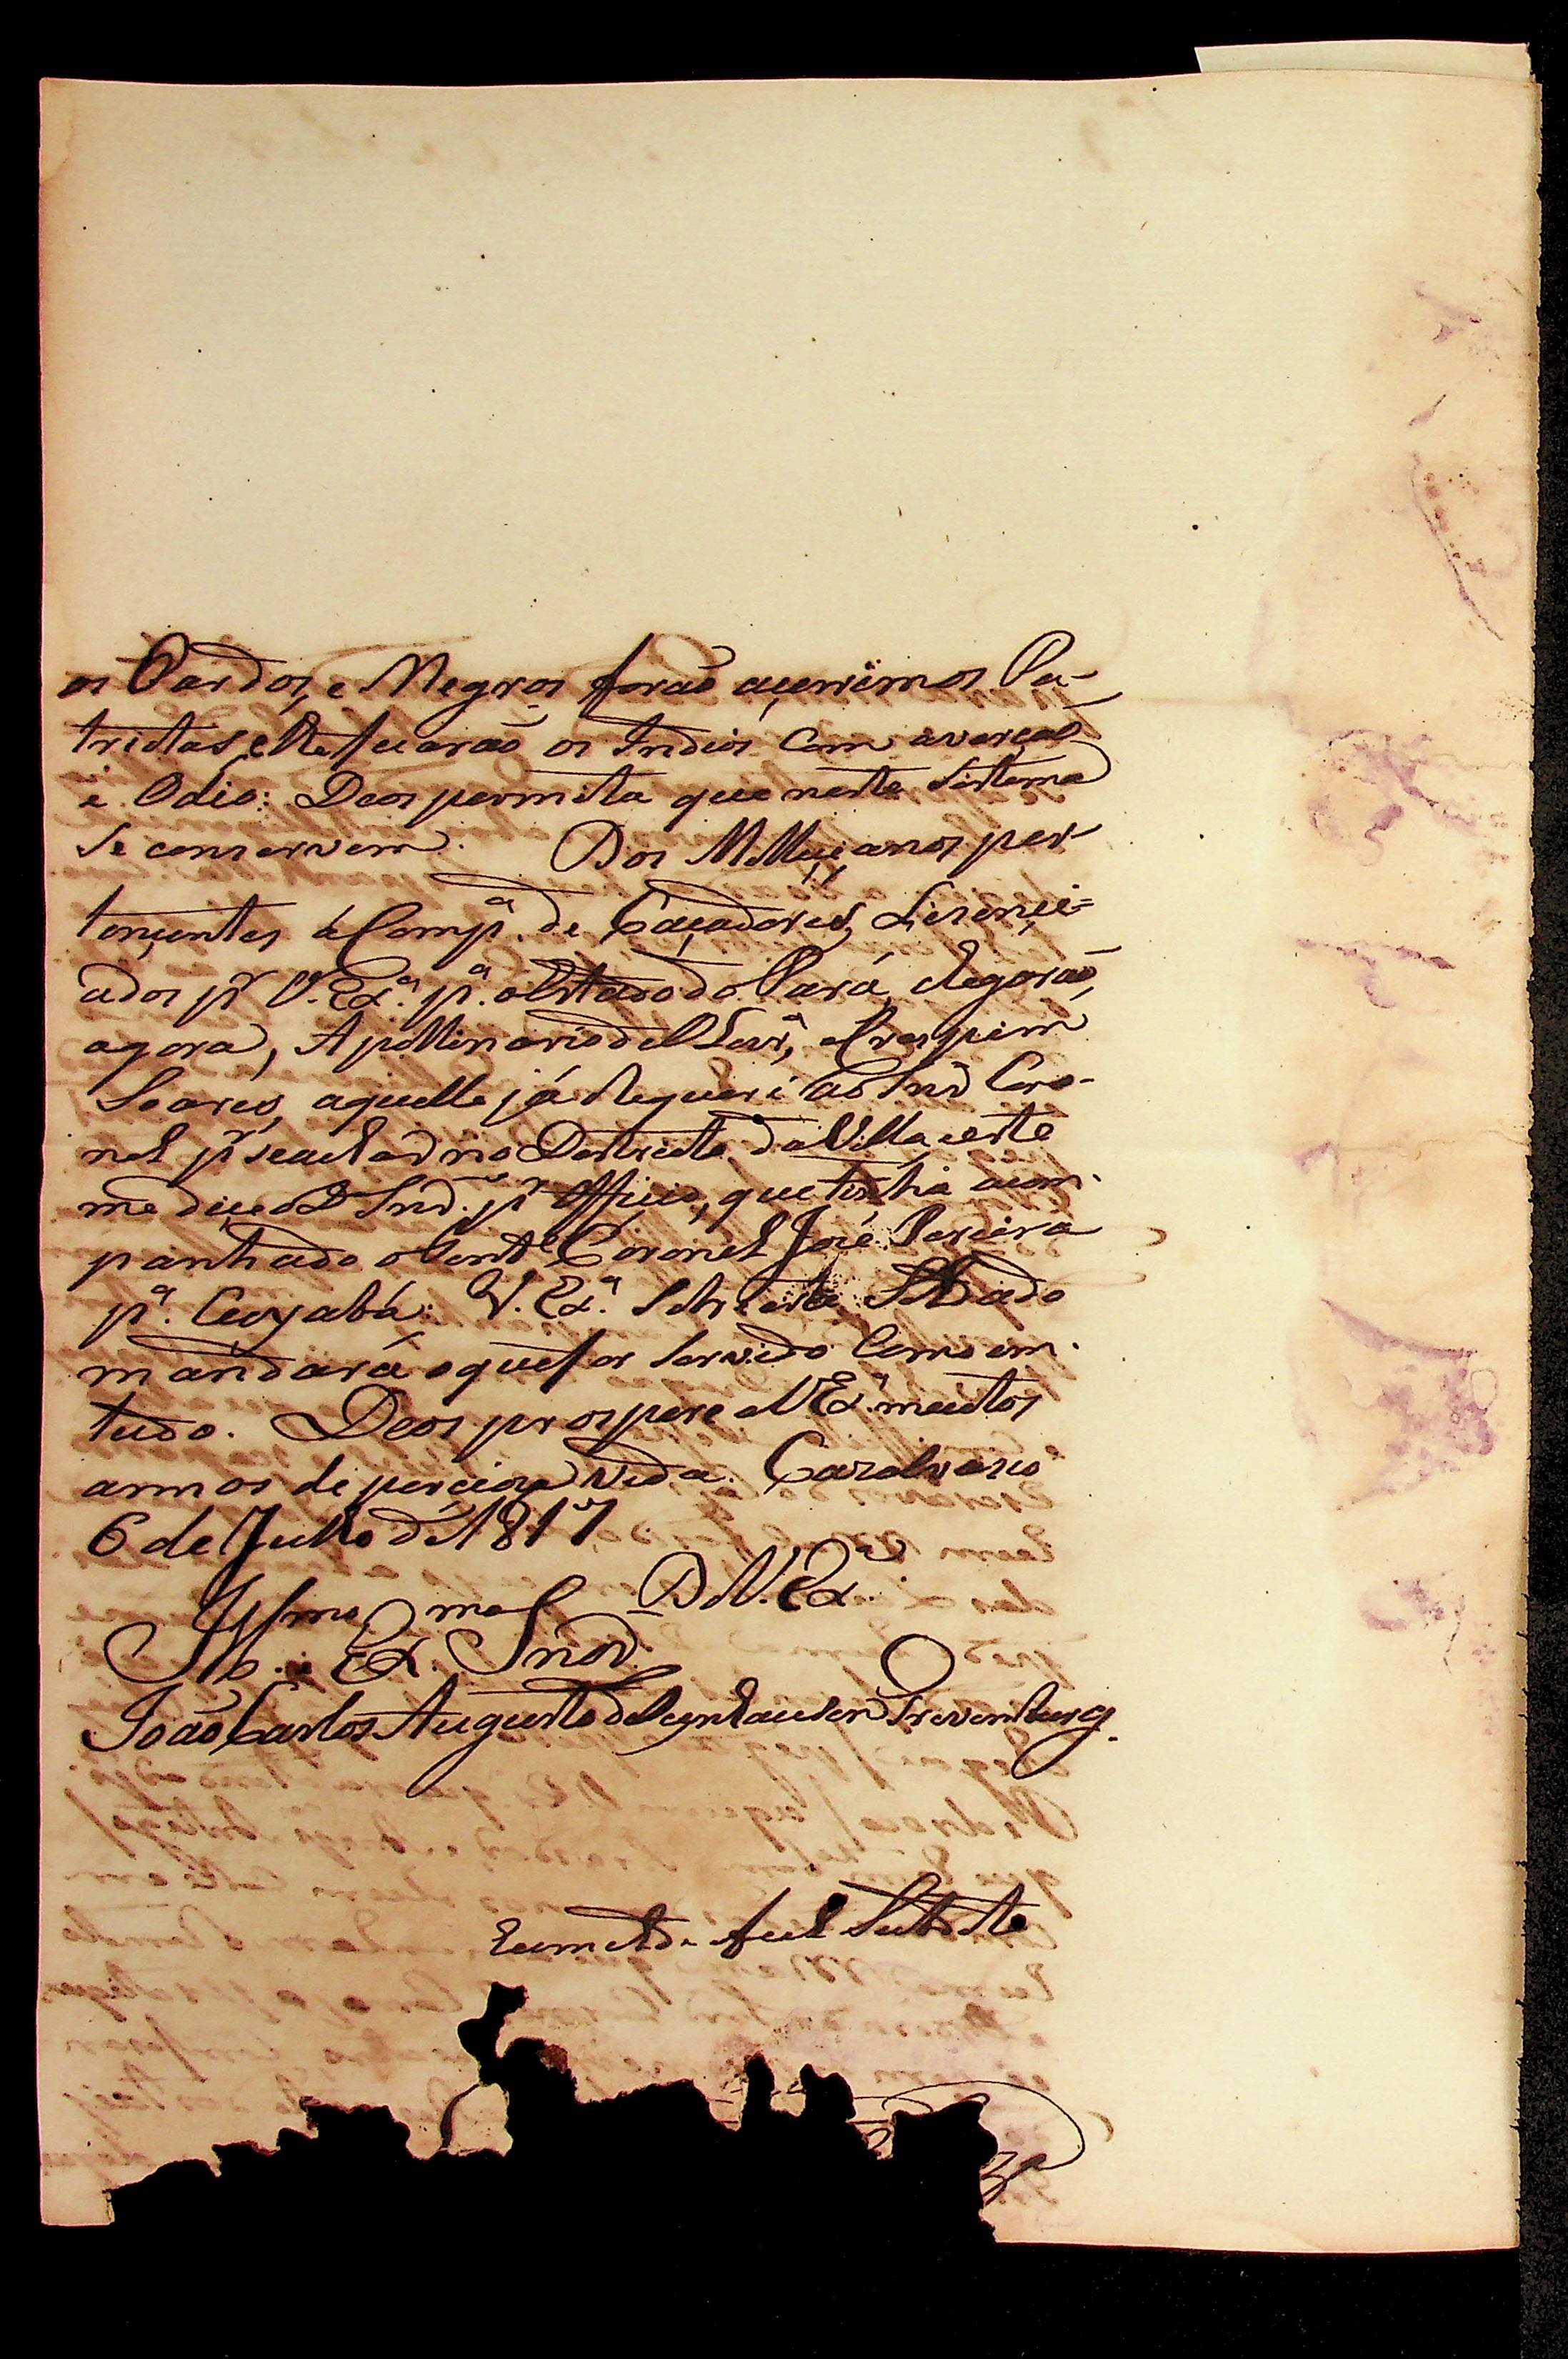 os Pardos, e Negros forão acerrimos Pa-
triotas, e Reputarão os Indios com averção
e Odio: Deos permita que neste Sistema
Se conservem. Dos Millicianos per-
tencentes á Comp.ª de Caçadores, Licenci=
ados p.r V. Ex.ª p.ª o Estado do Pará, chegarão,
agora, Apollinario de Olivr.ª, e Crespim
Soares, aquelle já Requeri ao Snr̃ Coro-
nel p.r se achar no Destricto da Villa, e este
me dice o D.º Snr̃. p.r Officio, que tinha acom-
panhado o Tent.e Coronel José Pereira
p.ª Cuyabá: V. Ex.ª Sobre este Soldado
mandará o que for Servido Como em
tudo. Deos prospere a V Ex.ª muitos
annos de perciosa vida. Cazalvasco
6 de Julho de 1817
De V. Ex.ª
Ill.mo e Ex.mo Snr̃.
João Carlos Augusto de Oeynhausen Grevenburg.
Humilde fiel Subdito